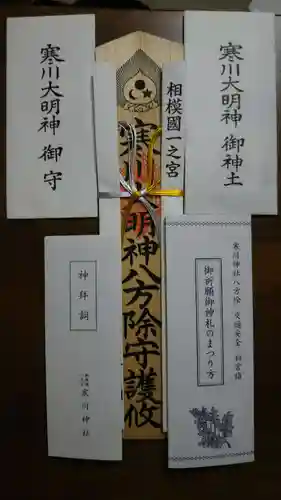 寒川大明神 御守
相模國一之宮
寒川大明神 御神土
寒川大明神八方除守護攸
神拝詞
寒川神社
寒川神社八方除 交通安全 相宮値
御祈願御神札のまつり方